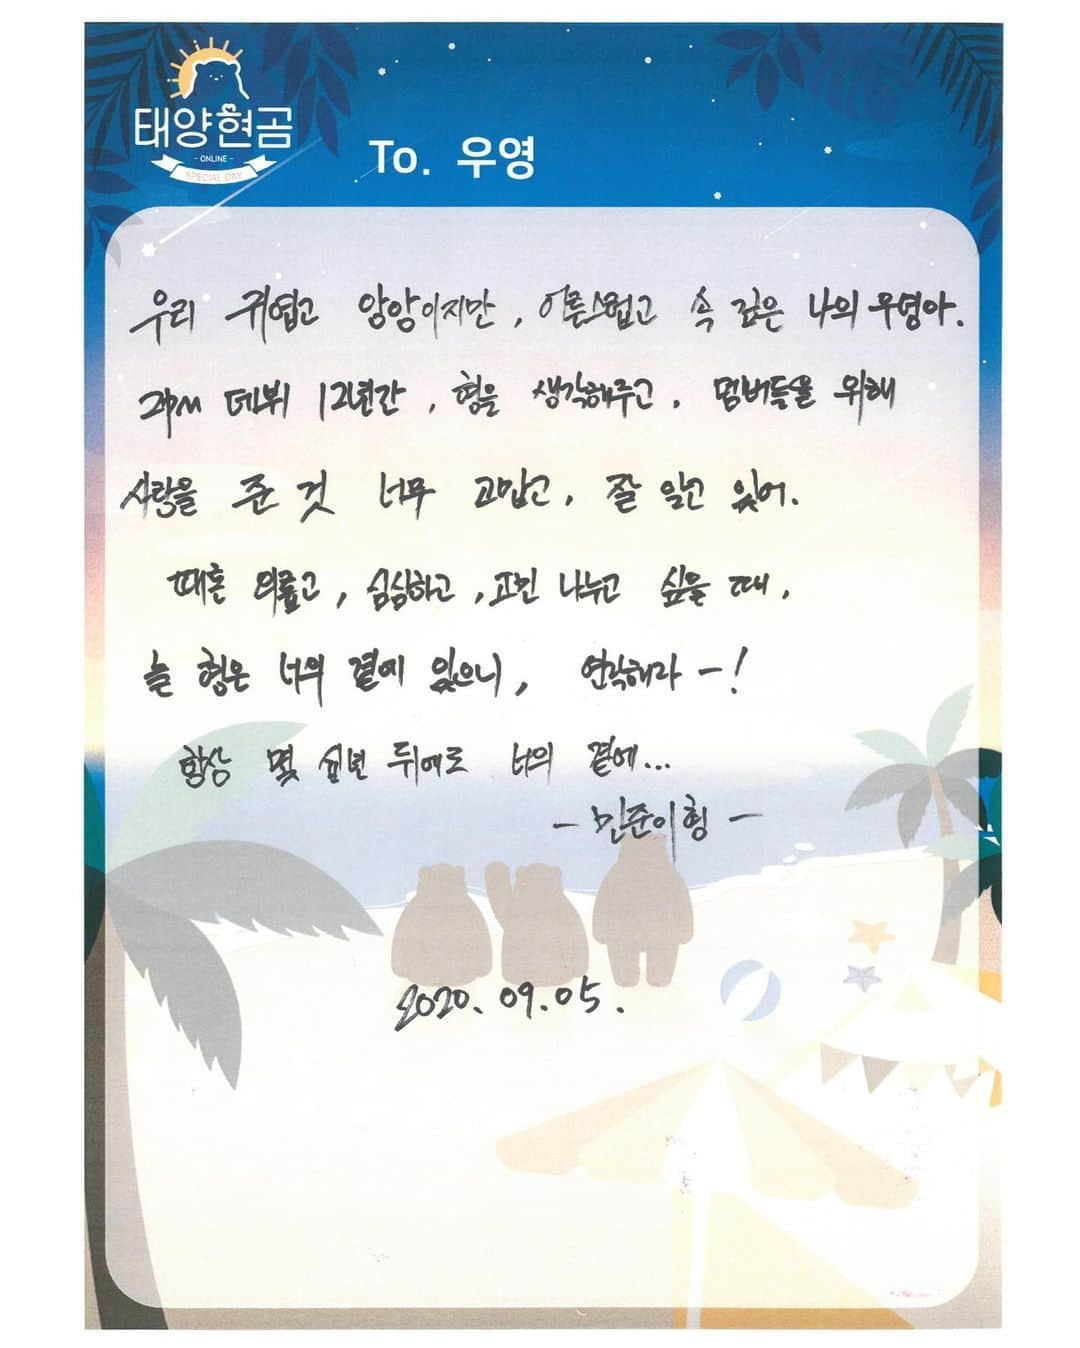 태양현곰
- ONLINE -
SPECIAL DAY
To. 우영
우리 귀엽고 앙앙이지만, 어른스럽고 속 깊은 나의 우영아.
2PM 데뷔 12년간, 형을 생각해주고, 멤버들을 위해
사랑을 준 것 너무 고맙고, 잘 알고 있어.
때론 외롭고, 심심하고, 고민 나누고 싶을 때,
늘 형은 너의 곁에 있으니, 연락해라 -!
항상 몇 십년 뒤에도 너의 곁에...
- 민준이형 -
2020. 09. 05.